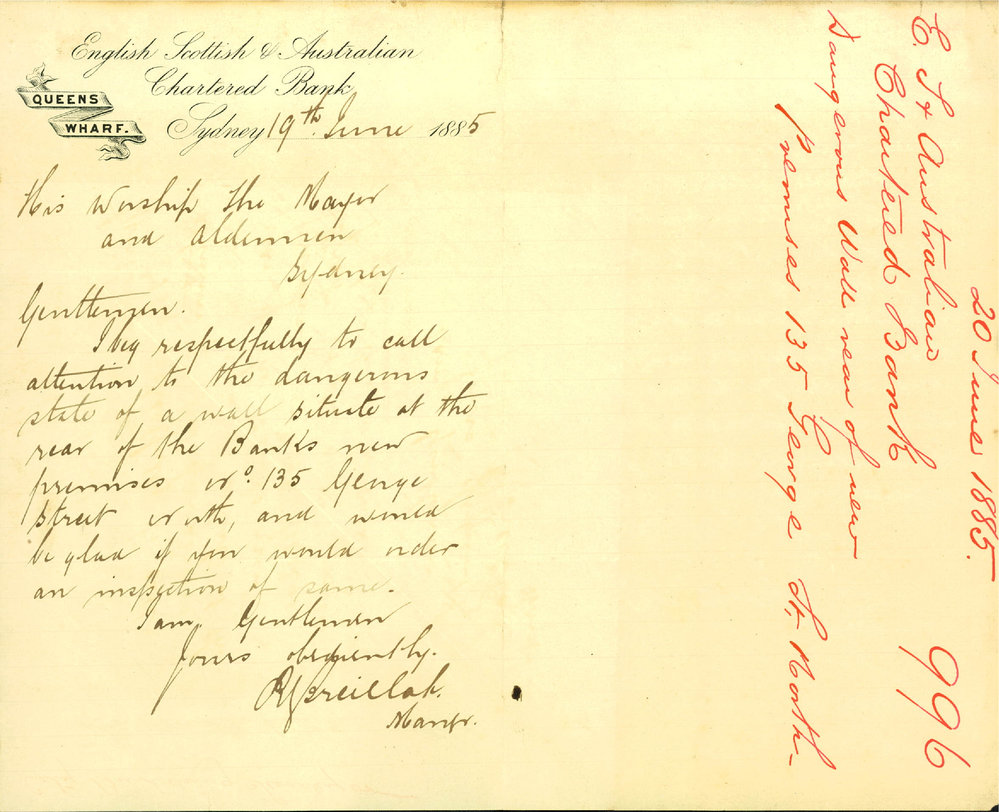 English Scottish & Australian
Chartered Bank
QUEENS
WHARF.
Sydney 19th June 1885
His Worship the Mayor
and Aldermen
Sydney.
Gentlemen.
I beg respectfully to call
attention to the dangerous
state of a wall situate at the
rear of the Banks new
premises No. 135 George
Street North, and would
be glad if you would order
an inspection of same.
I am, Gentlemen
Yours obediently.
Mangr.
20 June 1885.
996
E. S & Australian
Chartered Bank
Dangerous Wall rear of new
premises 135 George St. North-